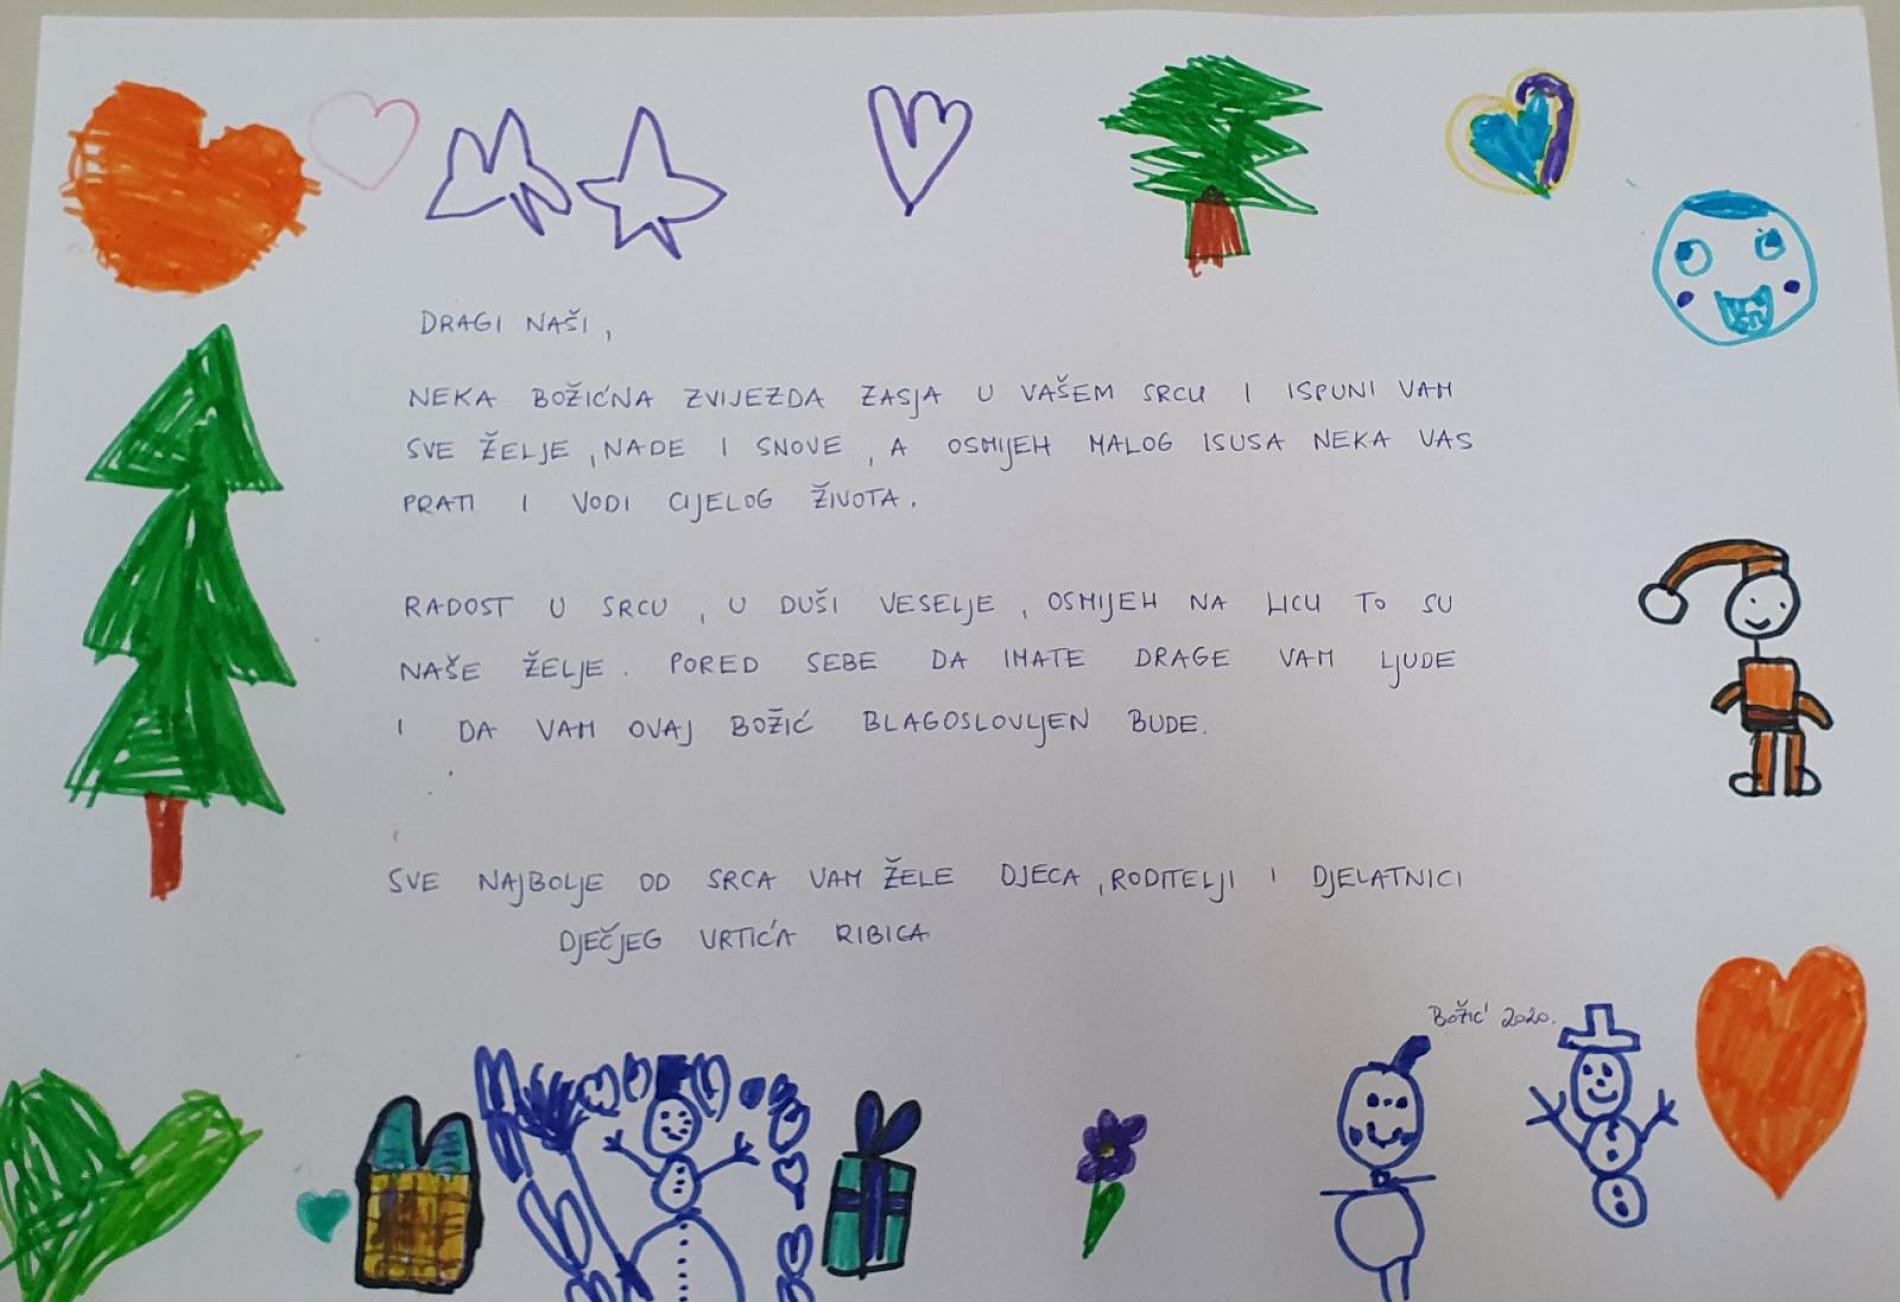 DRAGI NAŠI,
NEKA BOŽIĆNA ZVIJEZDA ZASJA U VAŠEM SRCU I ISPUNI VAM
SVE ŽELJE, NADE I SNOVE, A OSMIJEH MALOG ISUSA NEKA VAS
PRATI I VODI CIJELOG ŽIVOTA.
RADOST U SRCU, U DUŠI VESELJE, OSMIJEH NA LICU TO SU
NAŠE ŽELJE. PORED SEBE DA IMATE DRAGE VAM LJUDE
I DA VAM OVAJ BOŽIĆ BLAGOSLOVLJEN BUDE.
SVE NAJBOLJE OD SRCA VAM ŽELE DJECA, RODITELJI I DJELATNICI
DJEČJEG VRTIĆA RIBICA
BOŽIĆ 2020.